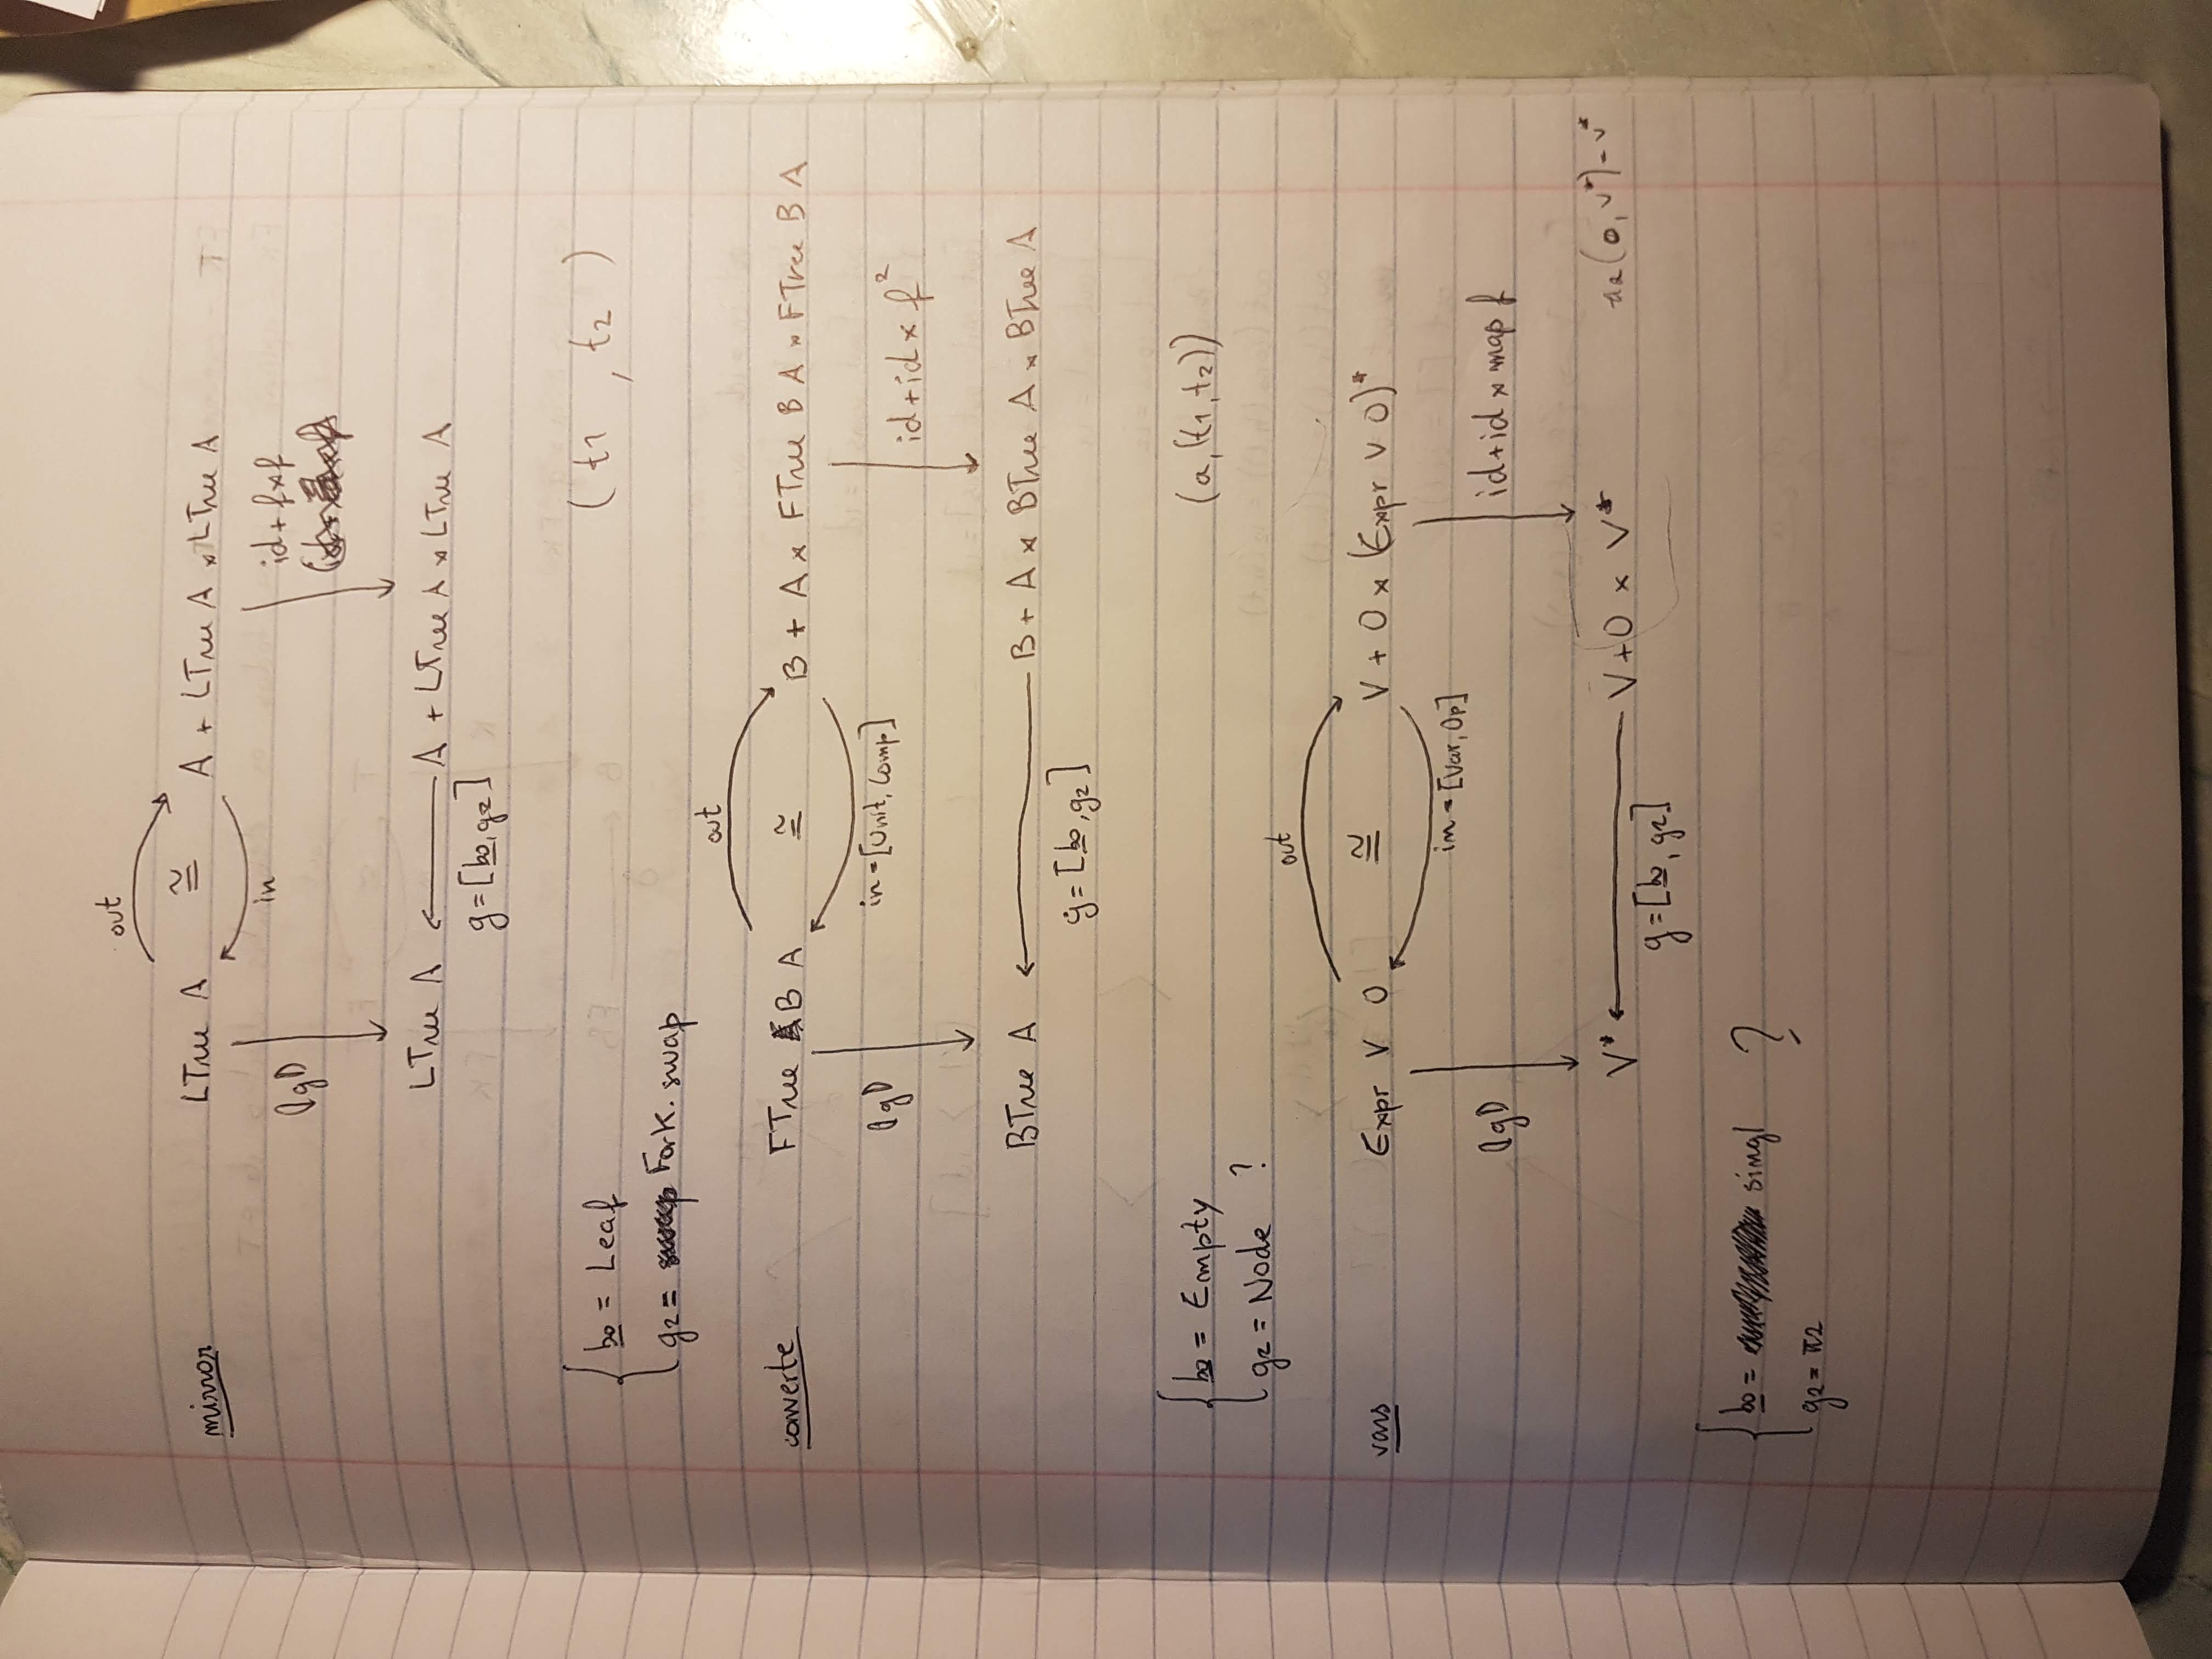 out
mirror LTree A ≅ A + LTree A × LTree A
in
⦇g⦈ id + f×f
LTree A ← A + LTree A × LTree A
g = [b0, g2]
b0 = Leaf (t1 , t2 )
g2 = Fork. swap
out
converte FTree B A ≅ B + A × FTree B A × FTree B A
in = [Unit, Comp]
⦇g⦈ id + id × f²
BTree A ← B + A × BTree A × BTree A
g = [b0, g2]
b0 = Empty (a, (t1, t2))
g2 = Node ?
out
vars Expr V O ≅ V + O × (Expr V O)*
in = [Var, Op]
⦇g⦈ id + id × map f
V* ← V + O × V* π2 (O, V*) = V*
g = [b0, g2]
b0 = singl ?
g2 = π2